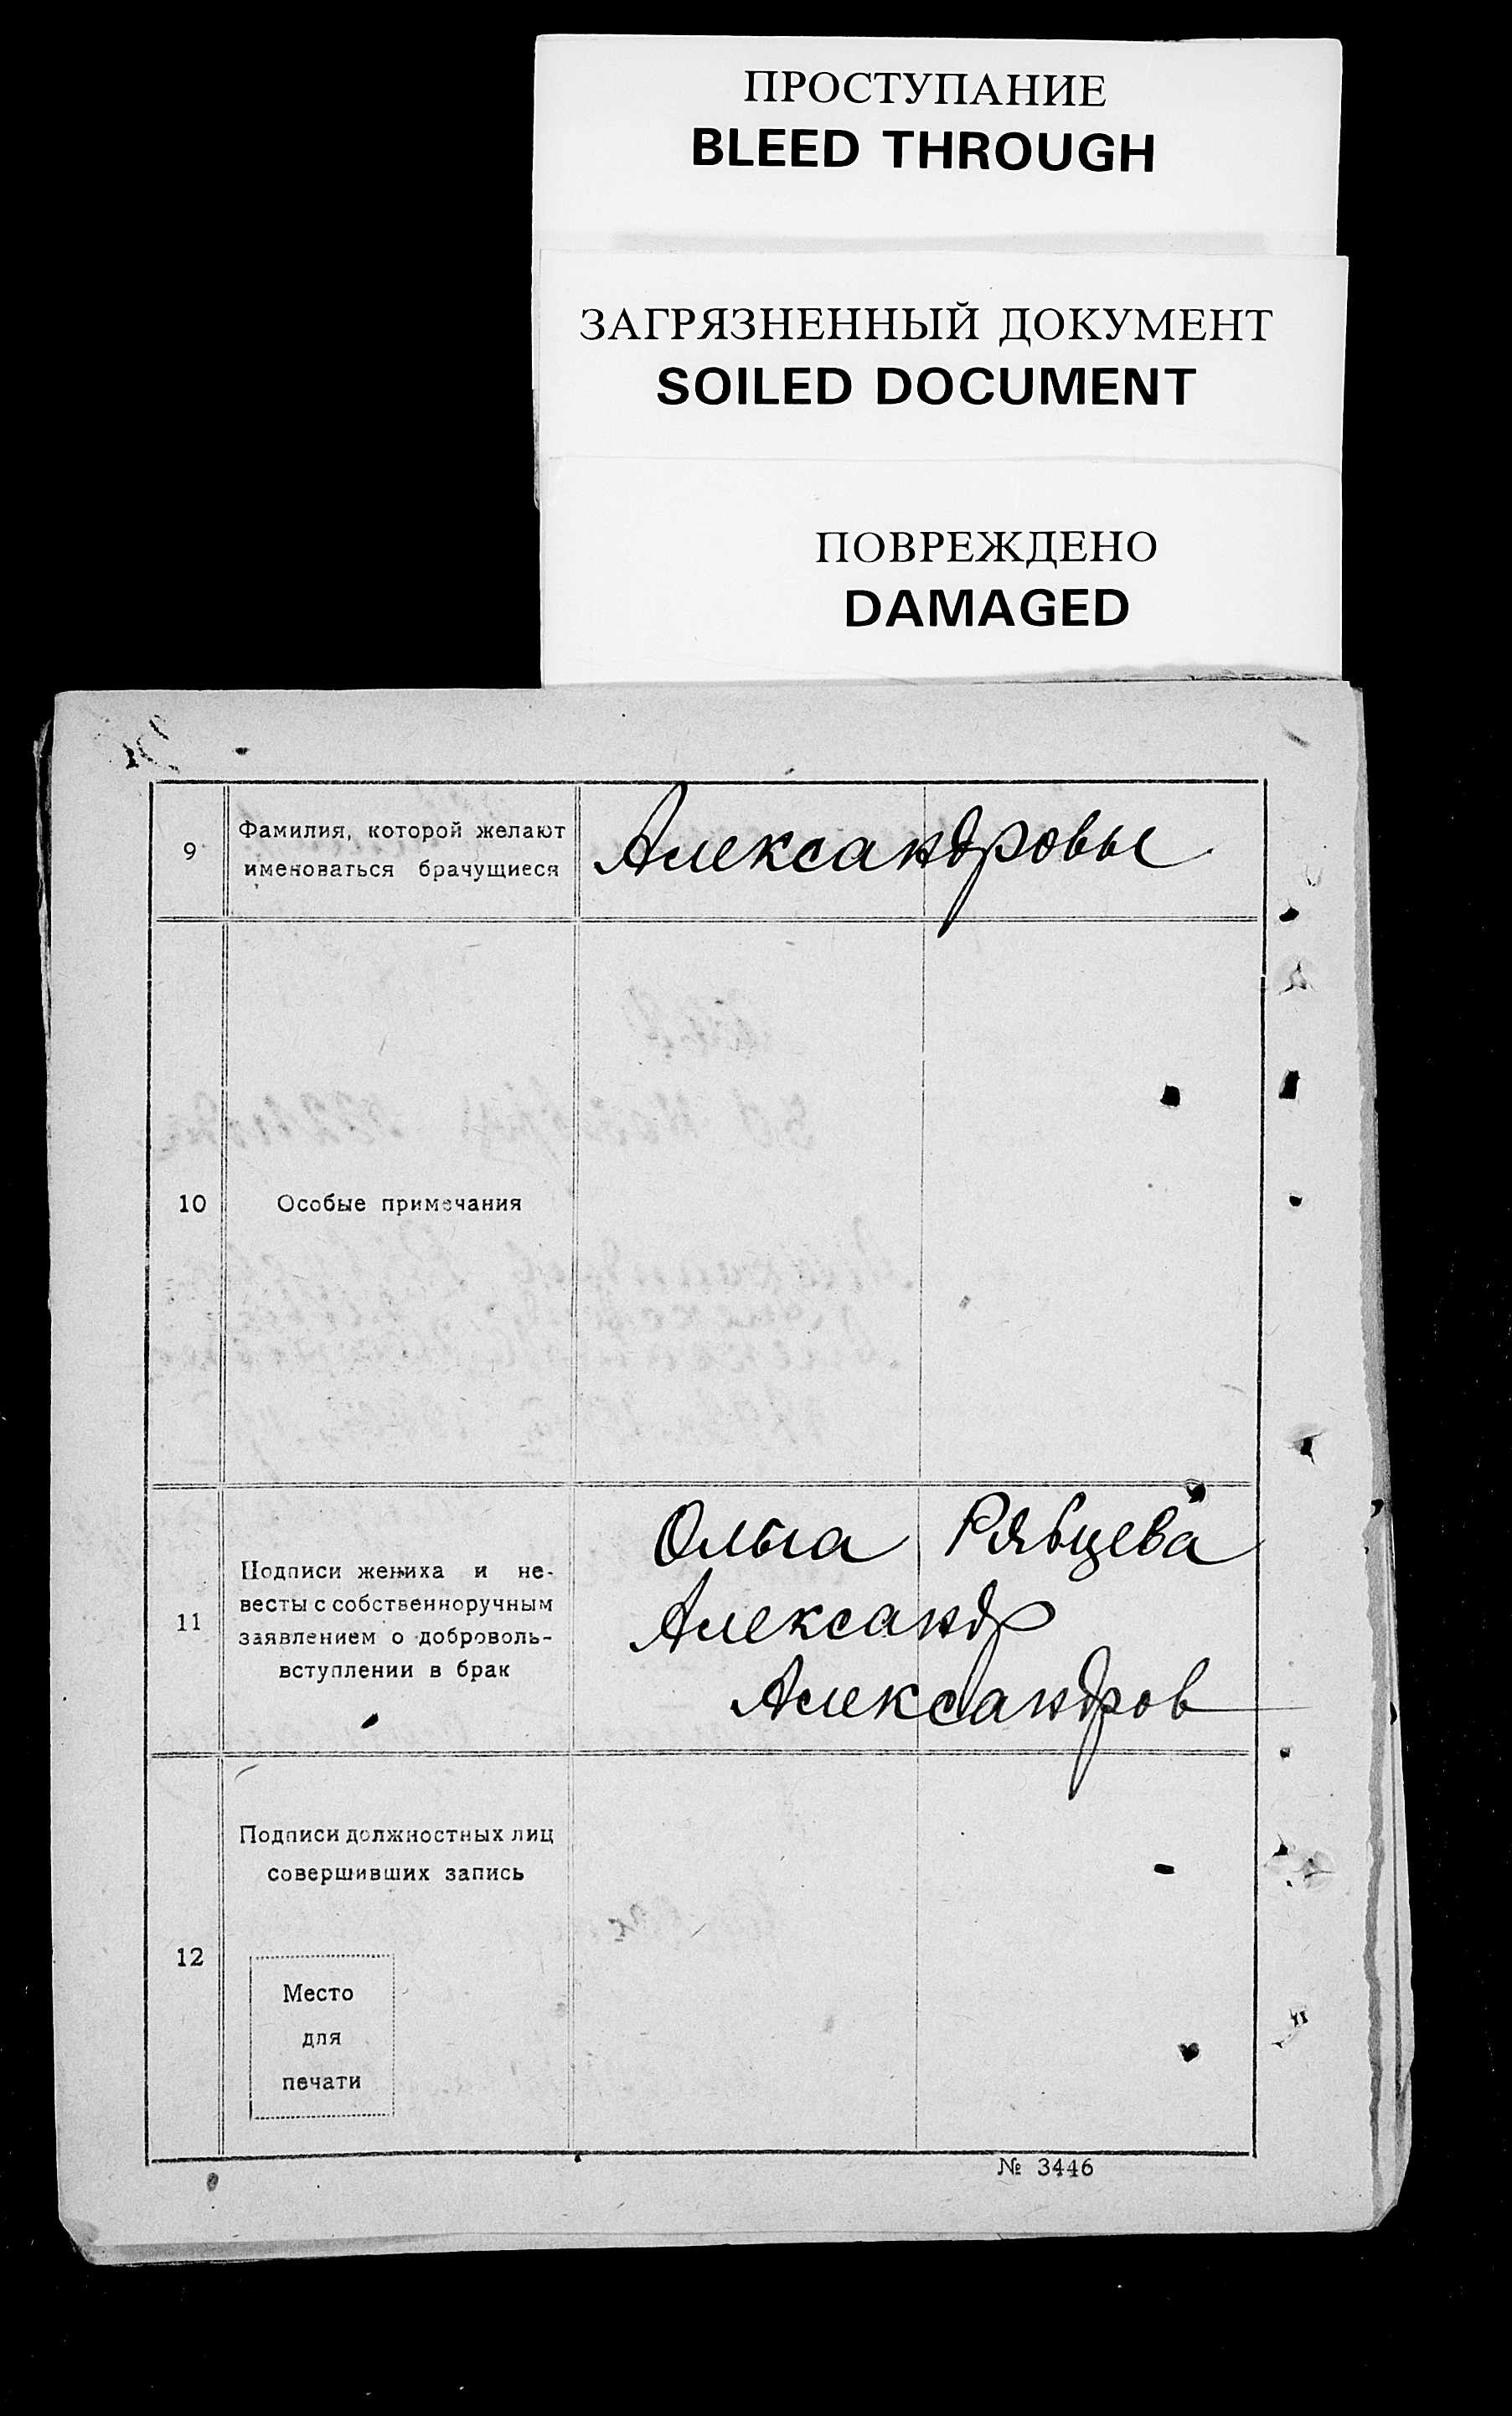 ПРОСТУПАНИЕ
BLEED THROUGH
ЗАГРЯЗНЕННЫЙ ДОКУМЕНТ
SOILED DOCUMENT
ПОВРЕЖДЕНО
DAMAGED
9
Фамилия, которой желают
именоваться брачущиеся
Александровы
10
Особые примечания
11
Подписи жениха и не-
весты с собственноручным
заявлением о доброволь-
вступлении в брак
Ольга Рябцева
Александр
Александров
12
Подписи должностных лиц
совершивших запись
Место
для
печати
№ 3446